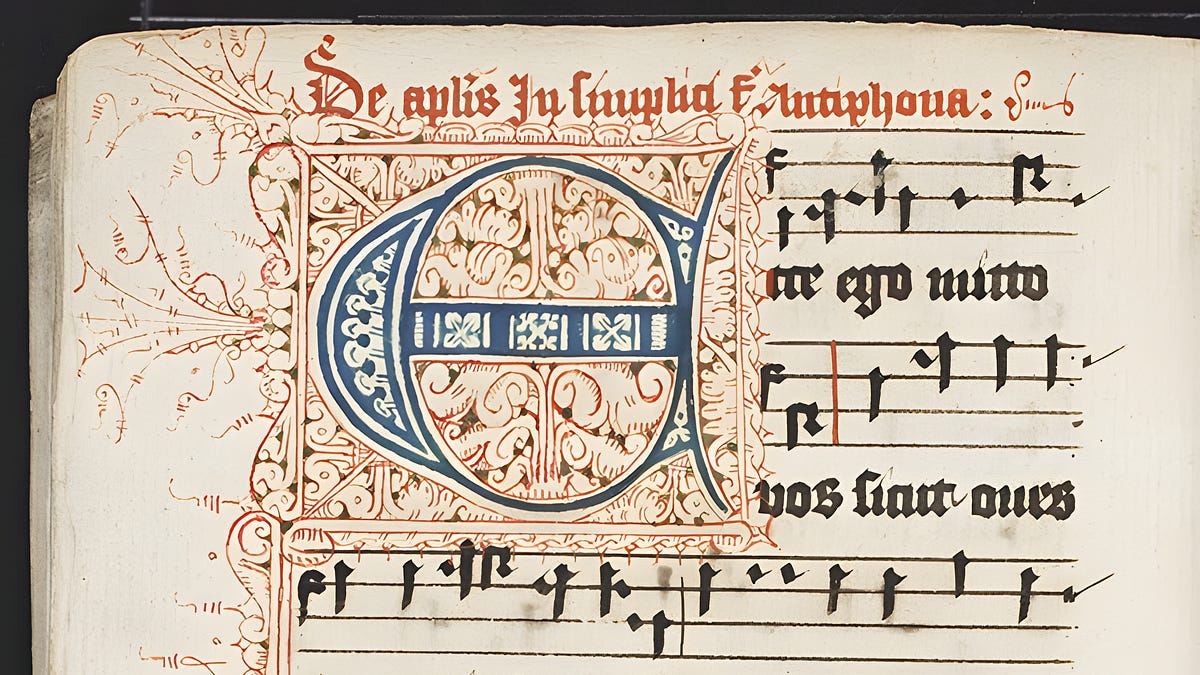 De apl̄is In simplici f̄ Antiphona:
Ecce ego mitto
vos sicut oues